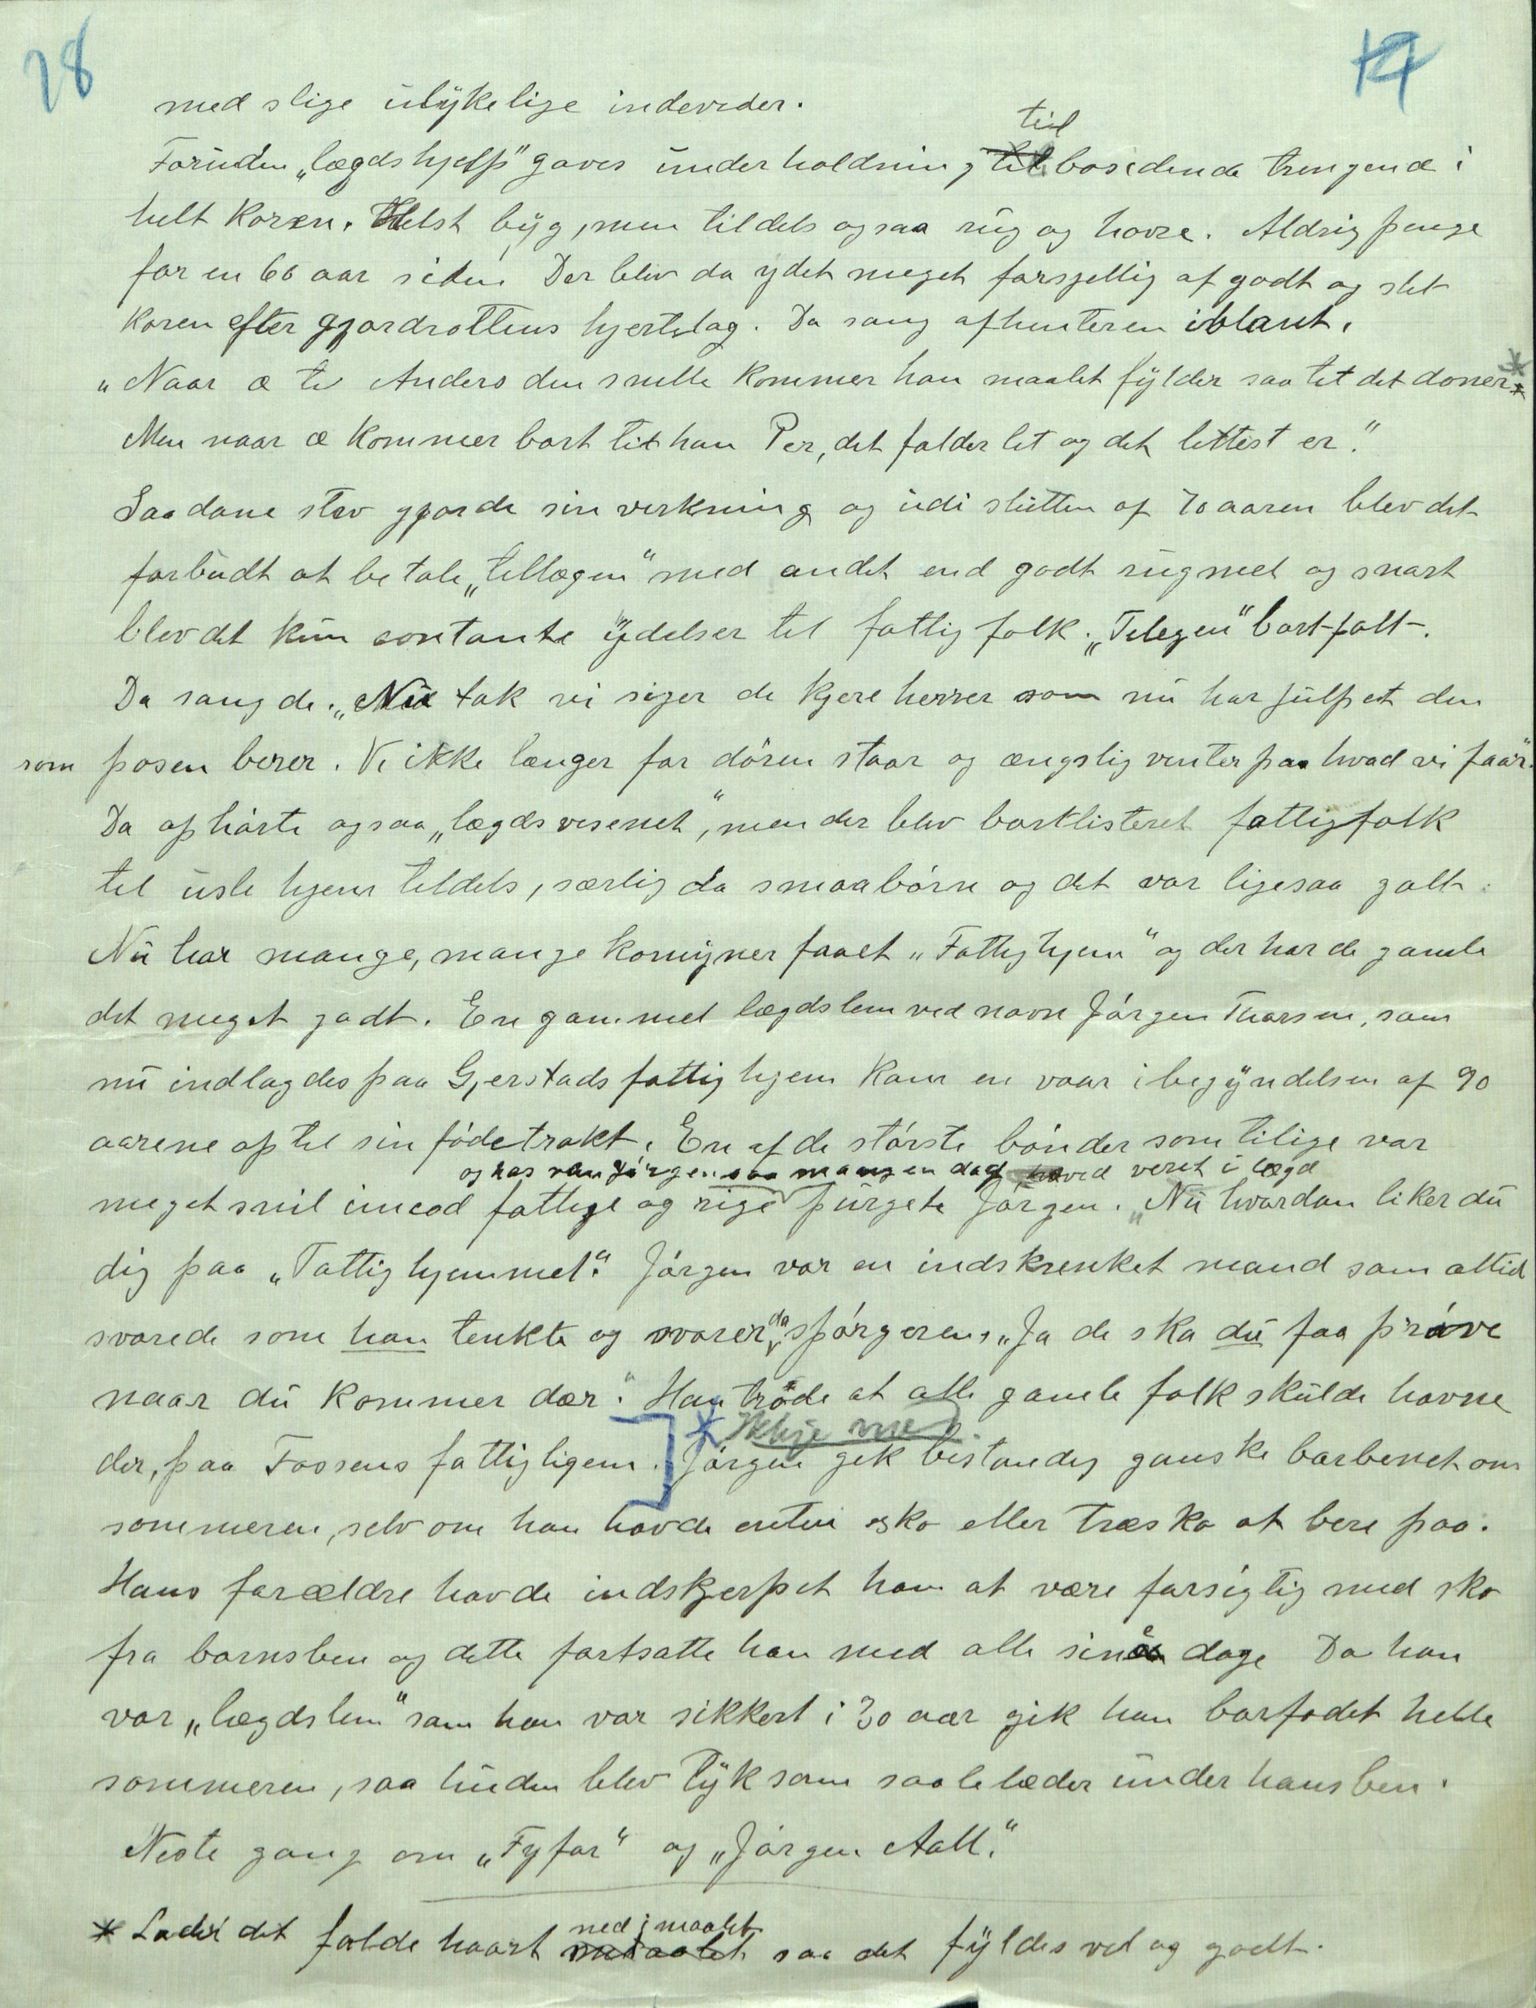 78
med slige ulykelige indeveder.
Foruden „lægdshjelp" gaves underholdning til bosedende trengende i
helt koren. Helst byg, men tildels ogsaa rug og havre. Aldrig penge
for en 60 aar siden. Der blev da ydet meget forsjellig af godt og slet
koren efter gjordrottens hjertelag. Da sang afhenteren iblant.
„Naar æ te Anders den snelle kommer han maalet fylder saa tet det doner *
Men naar æ kommer bort til han Per, det falder let og det lettest er."
Saadane stev gjorde sin verkning og udi slutten af 70 aaren blev det
forbudt at betale „tellægen" med andet end godt rugmel og snart
blev det kun contante ydelser til fattigfolk. „Telegen" bortfalt.
Da sang de. „Nu tak vi siger de kjere herrer som nu har julpet den
som posen berer. Vi ikke længer for døren staar og ængslig venter paa hvad vi faar".
Da ophørte ogsaa „lægdsvesenet", men der blev bortlisteret fattigfolk
til usle hjem teldels, særlig da smaabørn og det var ligesaa galt.
Nu har mange, mange komyner faaet „Fattighjem" og der har de gamle
det meget godt. En gammel lægdslem ved navn Jørgen Thorsen, som
nu indlagdes paa Gjerstads fattighjem kom en vaar i begyndelsen af 90
aarene op til sin fødetrakt. En af de største bønder som tilige var
og hos van Jørgen saa mangen dag haved veret i lægd
meget snil imod fattige og rige spurgete Jørgen. „Nu hvordan liker du
dig paa „Fattighjemmet". Jørgen var en indskrenket mand som altid
svarede som han tenkte og svarer da spørgeren, „Ja de ska du faa prøve
naar du kommer dær". Han trode at alle gamle folk skulde havne
der, paa Fossens fattighjem. * Ikkje med. Jørgen gik bestandig ganske barbenet om
sommeren, selv om han havde enten sko eller træsko at bere paa.
Hans forældre havde indskjerpet ham at være forsigtig med sko
fra barnsben og dette fortsatte han med alle sine dage Da han
var „lægdslem" som han var sikkert i 30 aar gik han barfodet hele
sommeren, saa huden blev tyk som saalelæder under hans ben.
Neste gang om „Fyfor" og „Jørgen Aall."
* Lader det falde haart ned i maalet saa det fyldes vel og godt.